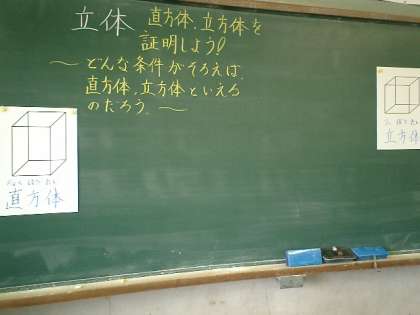 立体 直方体、立方体を
証明しよう!
～どんな条件がそろえば、
直方体、立方体といえる
のだろう。～
ちょく ほう たい
直方体
りっ ぽう たい
立方体